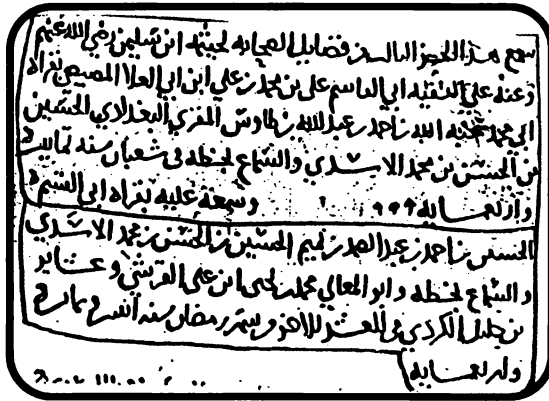 سمع هذا الجزء الثالث من فضائل الصحابة لخيثمة ابن سليمن رضي الله عنهم
وعنه على الفقيه ابي القاسم علي بن محمد بن علي ابن ابي العلا المصيصي بقراه
ابي محمد هبة الله بن احمد بن عبد الله بن طاوس المقري البغدادي الحسين
بن الحسن بن محمد الاسدي والسماع بخطه في شعبان سنه ثمانين
واربعمايه وسمعه عليه بقراه ابي
الحسين بن احمد بن عبد الصمد بن تميم الحسين بن الحسن بن محمد الاسدي
والسماع بخطه وابو المعالي محمد بن يحيى ابن علي القرشي
بن خليل الكردي في العشر الاخر من شهر رمضان سنه اثنين وثمانين
واربعمايه